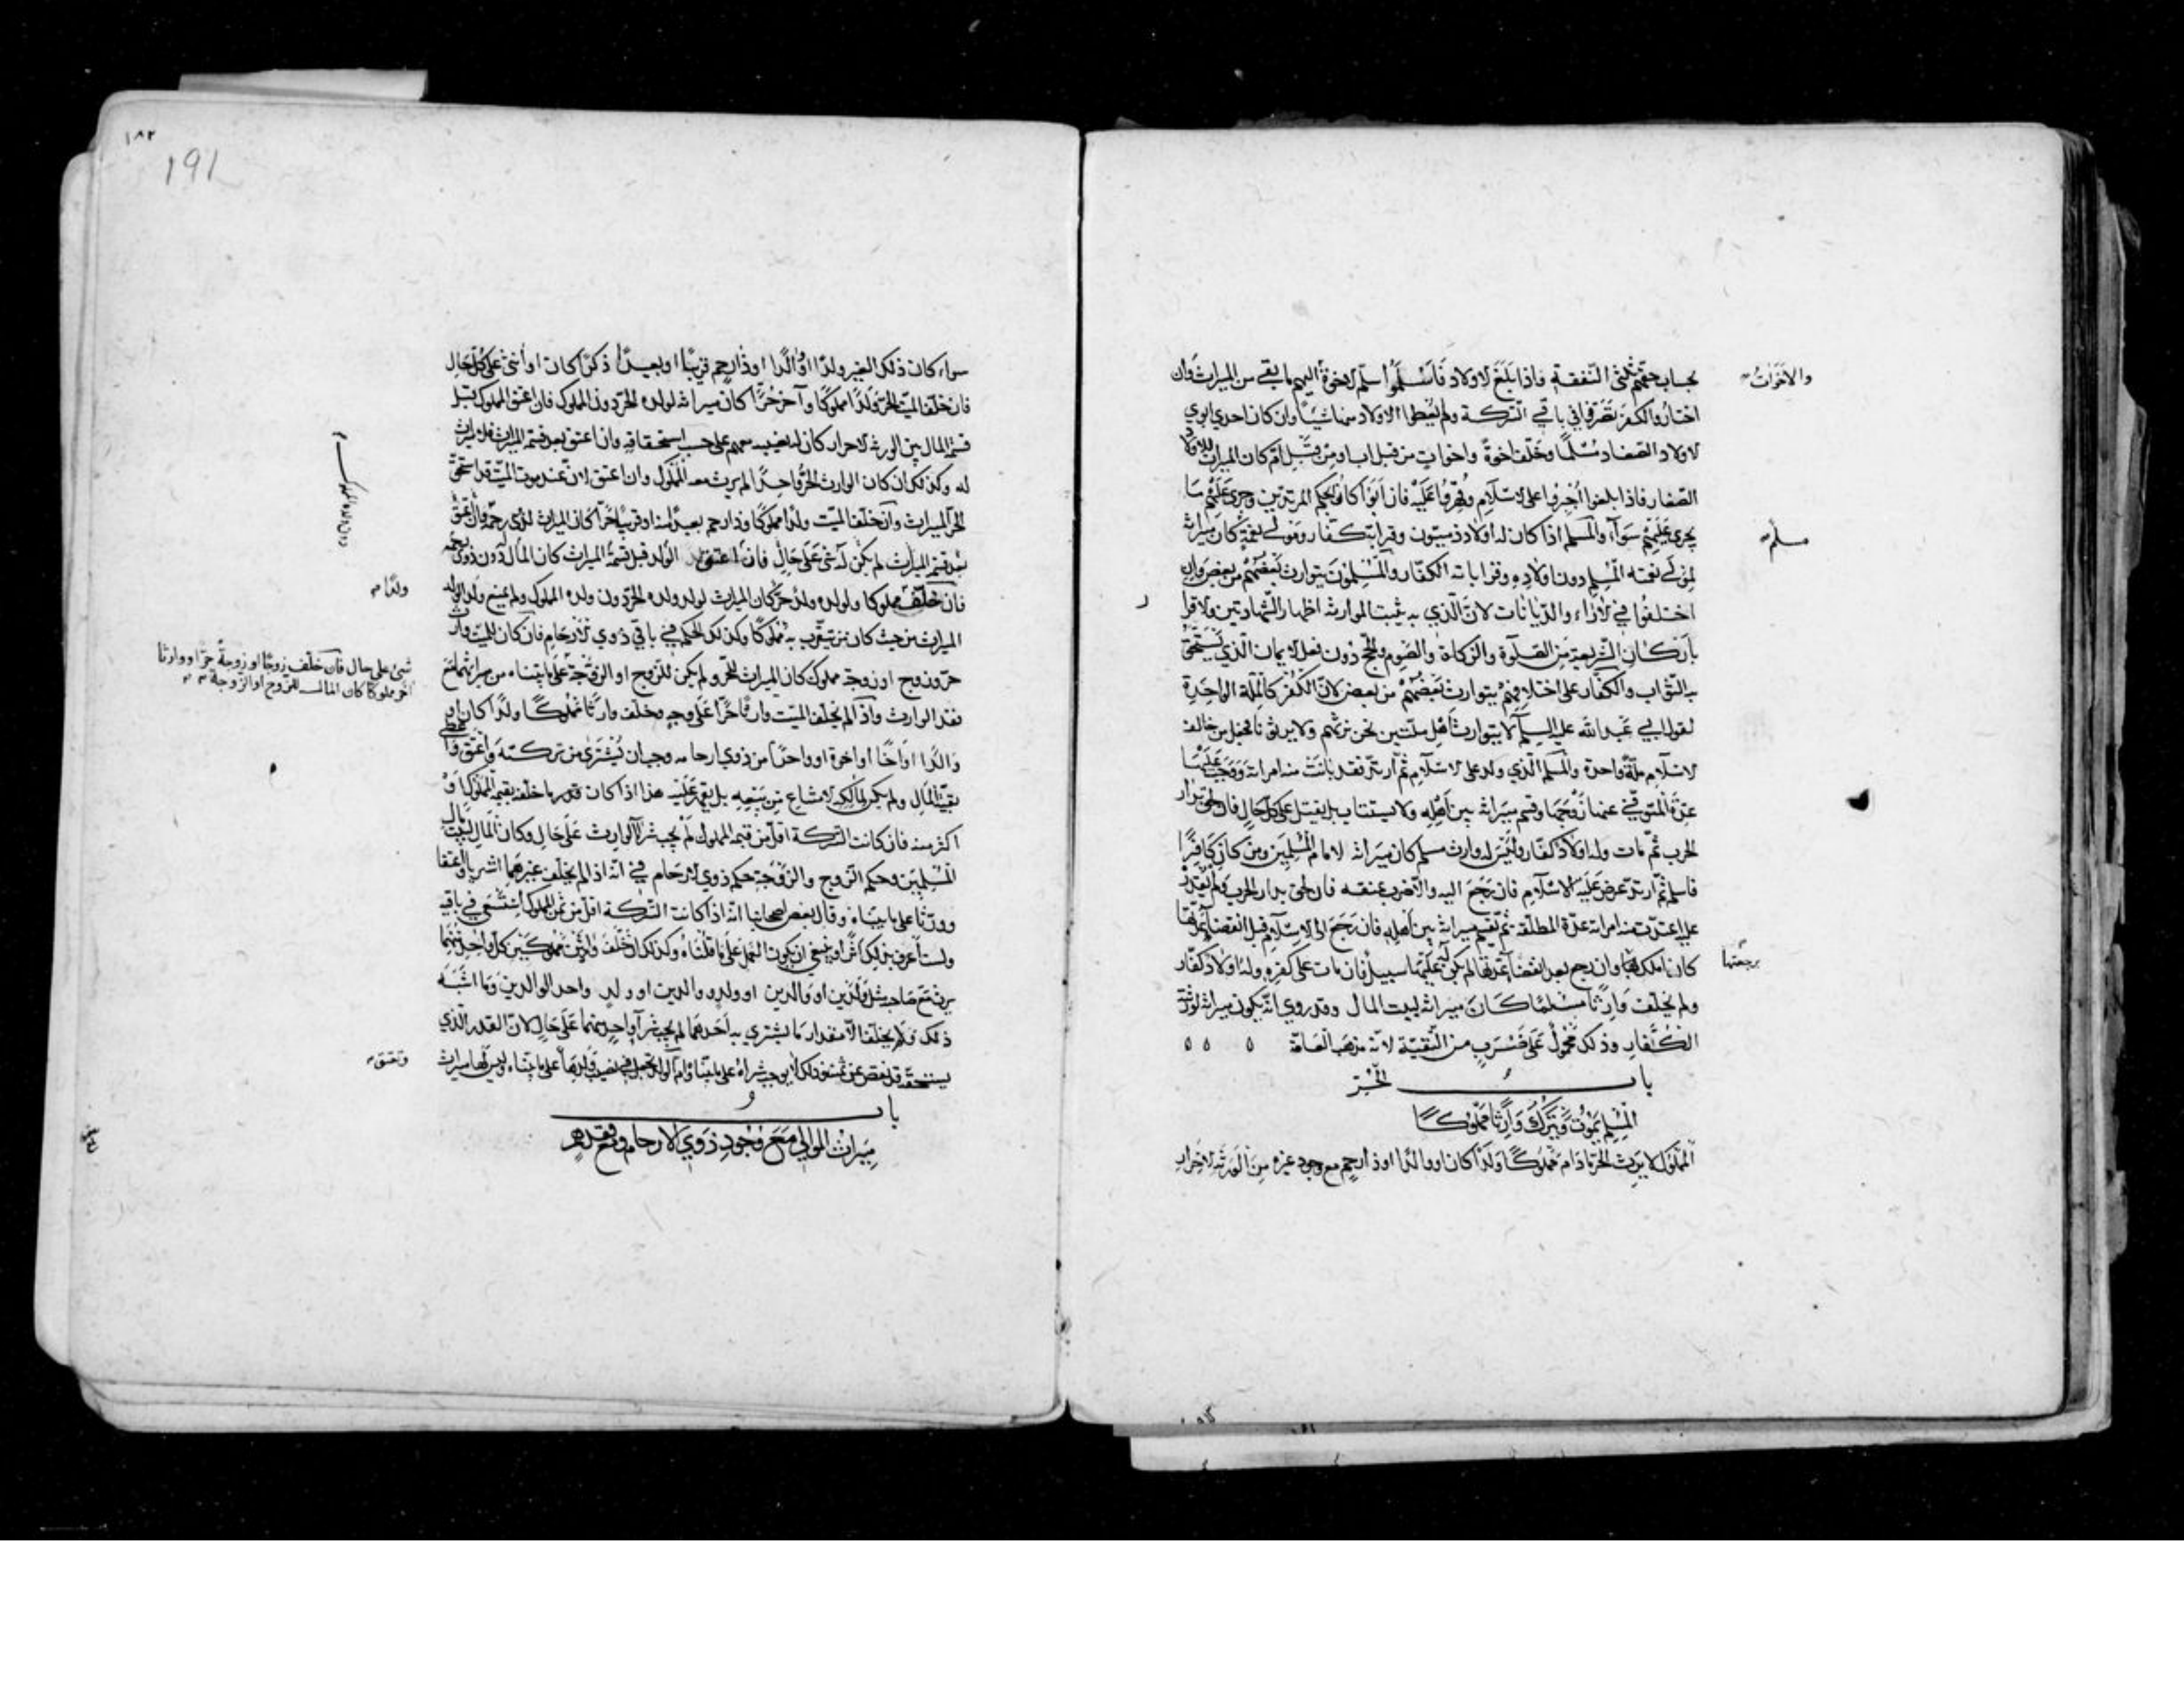 بحساب حقهم ثلثي النفقة فاذا بلغ الاولاد فاسلموا سلم الاخوة اليهم ما بقي من الميراث وان
والاخوات
اختاروا الكفر تصرفوا في باقي التركة ولم يعطوا الاولاد منها شيئا وان كان احد ابوي
الاولاد الصغار مسلما وخلف اخوة واخوات من قبل اب او من قبل ام كان الميراث للاولاد
الصغار فاذا بلغوا اجبروا على الاسلام وقهروا عليه فان ابوا كانوا بحكم المرتدين وجرى عليهم ما
يجري عليهم سواء والمسلم اذا كان له اولاد ذميون وقرابة كفار ومولى نعمة كان ميراثه
مسلم
لمولى نعمته المسلم دون اولاده وقراباته الكفار والمسلمون يتوارث بعضهم من بعض وان
اختلفوا في الاراء والديانات لان الذي به يثبت الموارثة اظهار الشهادتين والاقرار
باركان الشريعة من الصلوة والزكاة والصوم والحج دون فعل الايمان الذي يستحق
به الثواب والكفار على اختلافهم يتوارث بعضهم من بعض لان الكفر كالملة الواحدة
لقول ابي عبد الله عليه السلام لا يتوارث اهل ملتين نحن نرثهم ولا يرثونا فجعل من خالف
الاسلام ملة واحدة والمسلم الذي ولد على الاسلام ثم ارتد فقد بانت منه امراته ووجب عليها
عدة المتوفى عنها زوجها وقسم ميراثه بين اهله ولا يستتاب بل يقتل على كل حال فان لحق بدار
الحرب ثم مات وله اولاد كفار وليس له وارث مسلم كان ميراثه لامام المسلمين ومن كان كافرا
فاسلم ثم ارتد عرض عليه الاسلام فان رجع اليه والا ضرب عنقه فان لحق بدار الحرب ولم يقدر
عليه اعتدت منه امراته عدة المطلقة ثم يقسم ميراثه بين اهله فان رجع الى الاسلام قبل انقضاء عدتها
كان املك بها وان رجع بعد انقضاء عدتها لم يكن له عليها سبيل فان مات على كفره وله اولاد كفار
برجعتها
ولم يخلف وارثا مسلما كان ميراثه لبيت المال وقد روي انه يكون ميراثه لورثته
الكفار وذلك محمول على ضرب من التقية لانه مذهب العامة
باب الحر
المسلم يموت ويترك وارثا مملوكا
المملوك لا يرث الحر ما دام مملوكا ولدا كان او والدا او ذا رحم مع وجود غيره من الورثة الاحرار
١٨٢
191
سواء كان ذلك الغير ولدا او والدا او ذا رحم قريبا او بعيدا ذكرا كان او انثى على كل حال
فان خلف الميت الحر ولدا مملوكا وآخر حرا كان ميراثه لولده الحر دون المملوك فان اعتق المملوك قبل
قسمة المال بين الورثة الاحرار كان له نصيبه معهم على حسب استحقاقه وان اعتق بعد قسمة الميراث فلا ميراث
له وكذلك ان كان الوارث الحر واحدا لم يرث معه المملوك وان اعتق لان عند موت الميت قد استحق
الحر الميراث وان خلف الميت ولدا مملوكا وذا رحم بعيدا منه او قريبا حرا كان الميراث لذوي رحمه وان اعتق
بعد قسمة الميراث لم يكن له شئ على حال فان اعتق الولد قبل قسمة الميراث كان المال له دون ذوي رحمه
فان خلف مملوكا ولولده ولد حر كان الميراث لولد ولده الحر دون ولده المملوك ولم يمنع ولد الولد
ولدا
الميراث من حيث كان من يتقرب به مملوكا وكذلك الحكم في باقي ذوي الارحام فان كان للميت وارث
حر وزوج او زوجة مملوك كان الميراث للحر ولم يكن للزوج او الزوجة على ما بيناه من ميراثهما مع
شئ على حال فان خلف زوجا او زوجة حرا ووارثا
آخر مملوكا كان المال للزوج او الزوجة
فقد الوارث واذا لم يخلف الميت وارثا حرا على وجه وخلف وارثا مملوكا ولدا كان او
والدا او اخا او اخوة او واحدا من ذوي ارحامه وجب ان يشترى من تركته واعتق واعطي
بقية المال ولم يكن لمالكه الامتناع من بيعه بل يقهر عليه هذا اذا كان قدر ما خلف بقيمة المملوك او
اكثر منه فان كانت التركة اقل من قيمة المملوك لم يجب شراء الوارث على حال وكان المال لبيت مال
المسلمين وحكم الزوج والزوجة حكم ذوي الارحام في انه اذا لم يخلف غيرهما اشتريا واعتقا
وورثا على ما بيناه وقال بعض اصحابنا انه اذا كانت التركة اقل من ثمن المملوك استسعي في باقيه
ولست اعرف بذلك اثرا وينبغي ان يكون العمل على ما قلناه وكذلك ان خلف ولدين مملوكين كل واحد منهما
يرث مع صاحبه مثل ولدين او والدين او ولد ووالدين او ولد واحد الوالدين وما اشبه
ذلك ولم يخلف الا مقدار ما يشترى به احدهما لم يجب شراء واحد منهما على حال لان القدر الذي
يستحقه قد نقص عن ثمنه وذلك لا يوجب شراه على ما بيناه وام الولد تجعل في نصيب ولدها على ما بيناه وليس لها ميراث
وتعتق
باب
ميراث الموالي مع وجود ذوي الارحام ومع فقدهم